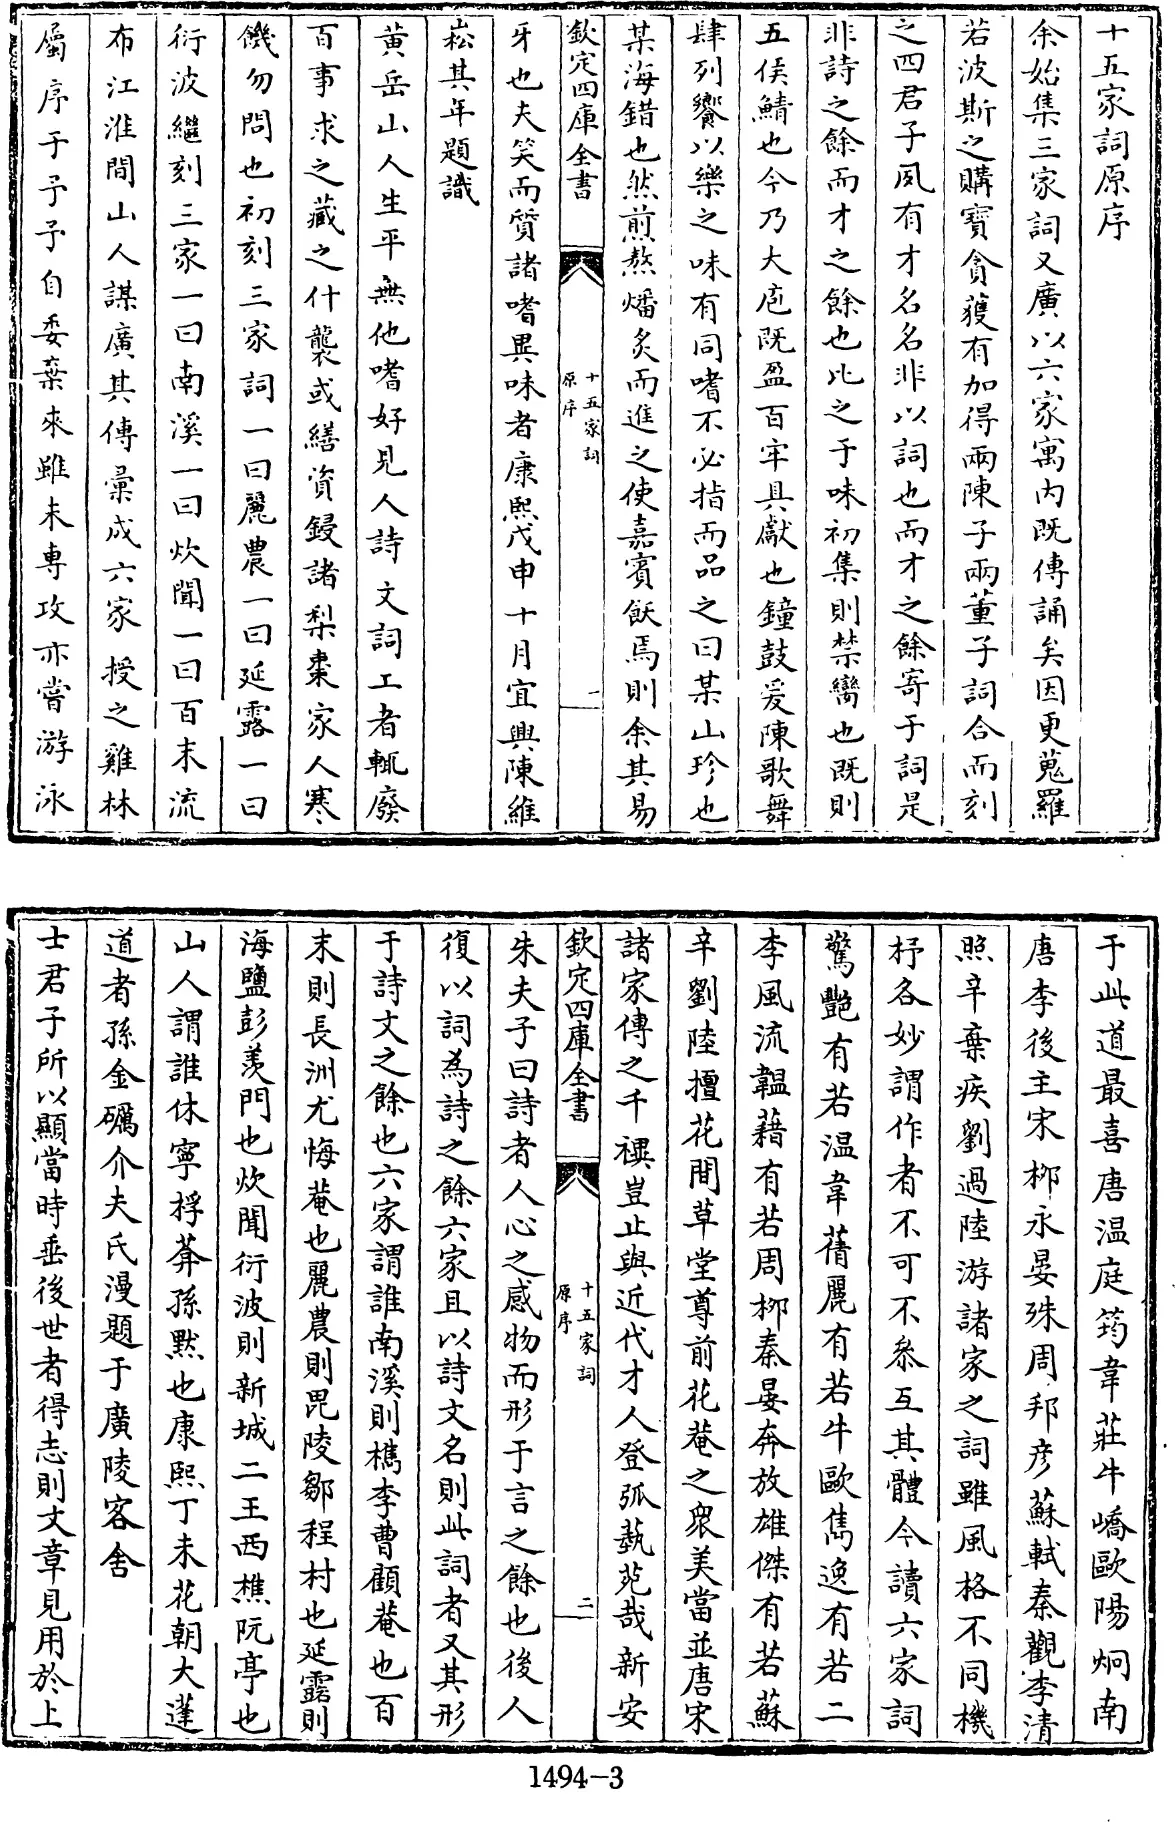 十五家詞原序
余始集三家詞又廣以六家寓内既傳誦矣因更蒐羅
若波斯之購寶貪獲有加得兩陳子兩董子詞合而刻
之四君子夙有才名名非以詞也而才之餘寄于詞是
非詩之餘而才之餘也比之于味初集則禁臠也既則
五侯鯖也今乃大庖既盈百牢具獻也鐘鼓爰陳歌舞
肆列饗以樂之味有同嗜不必指而品之曰某山珍也
某海錯也然煎熬燔炙而進之使嘉賓飫焉則余其易
欽定四庫全書
十五家詞
原序
一
牙也夫笑而質諸嗜異味者康熙戊申十月宜興陳維
崧其年題識
黄岳山人生平無他嗜好見人詩文詞工者輒廢
百事求之藏之什襲或繕資鋟諸梨棗家人寒
饑勿問也初刻三家詞一曰麗農一曰延露一曰
衍波繼刻三家一曰南溪一曰炊聞一曰百末流
布江淮間山人謀廣其傳彚成六家授之雞林
屬序于予予自委棄來雖未專攻亦嘗游泳
于此道最喜唐温庭筠韋莊牛嶠歐陽炯南
唐李後主宋柳永晏殊周邦彦蘇軾秦觀李清
照辛棄疾劉過陸游諸家之詞雖風格不同機
杼各妙謂作者不可不叅互其體今讀六家詞
驚艷有若温韋蒨麗有若牛歐雋逸有若二
李風流韞藉有若周柳秦晏奔放雄傑有若蘇
辛劉陸擅花間草堂尊前花菴之衆美當並唐宋
諸家傳之千禩豈止與近代才人登孤藝苑哉新安
欽定四庫全書
十五家詞
原序
二
朱夫子曰詩者人心之感物而形于言之餘也後人
復以詞為詩之餘六家且以詩文名則此詞者又其形
于詩文之餘也六家謂誰南溪則檇李曹顧菴也百
末則長洲尤悔菴也麗農則毘陵鄒程村也延露則
海鹽彭羡門也炊聞衍波則新城二王西樵阮亭也
山人謂誰休寧桴葊孫黙也康熙丁未花朝大蓬
道者孫金礪介夫氏漫題于廣陵客舍
士君子所以顯當時垂後世者得志則文章見用於上
1494-3